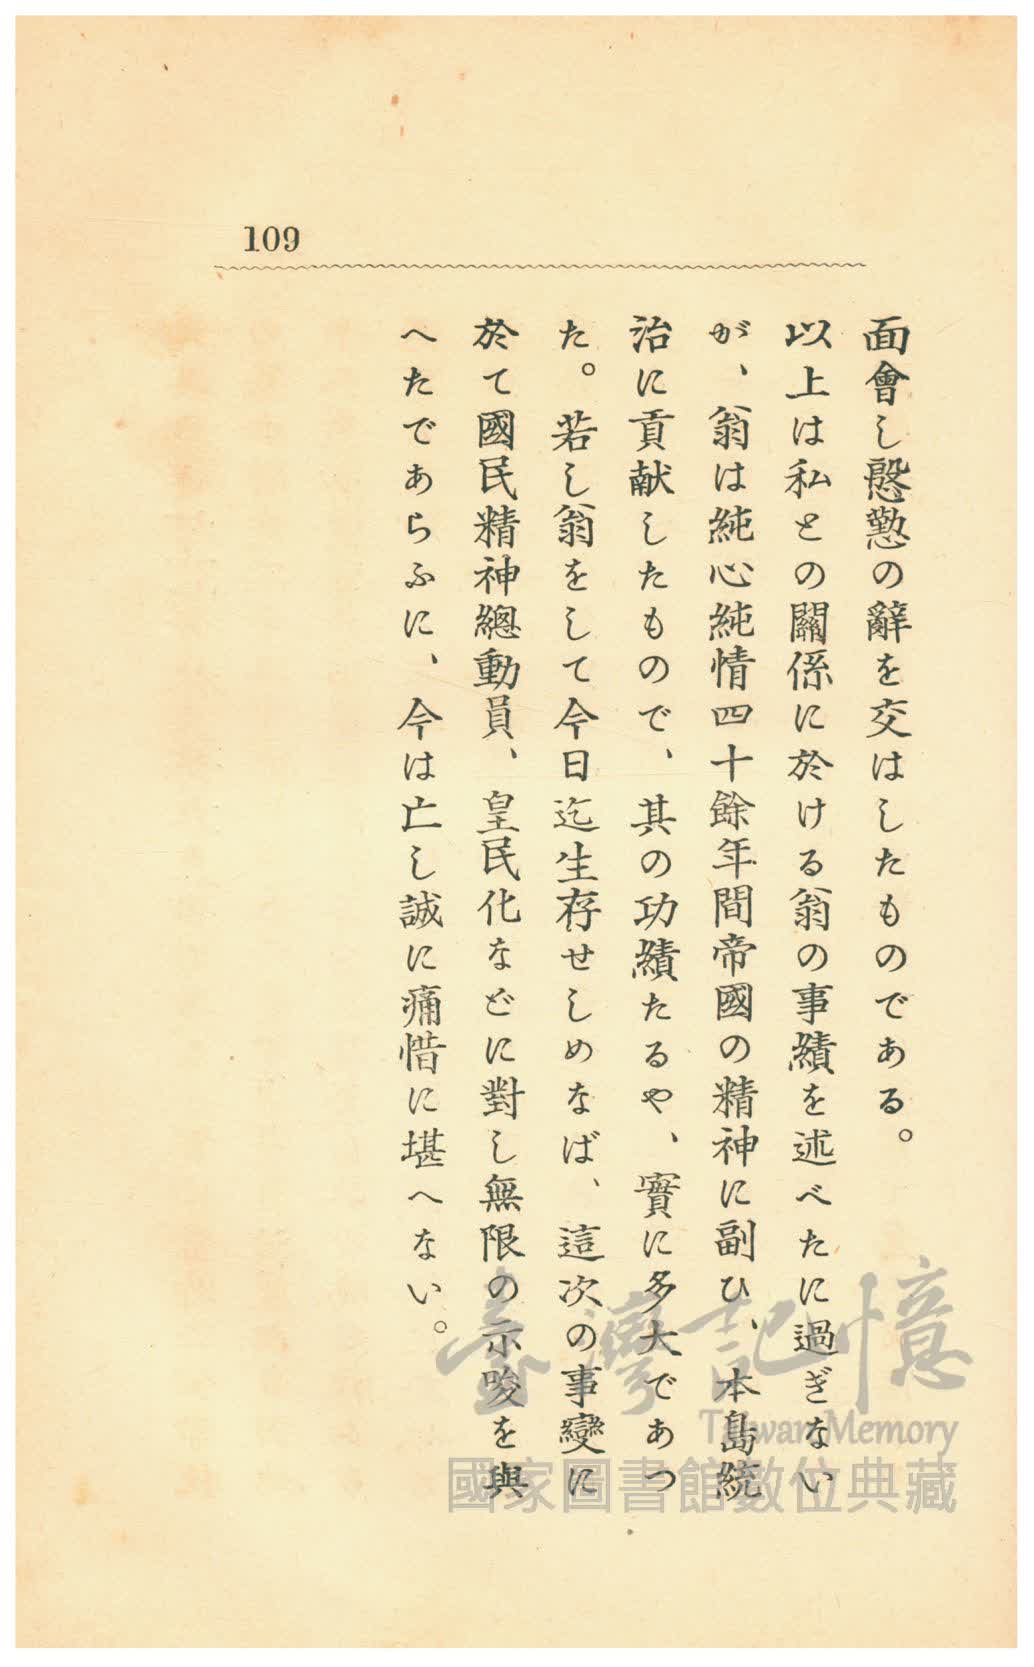 109
面會し慇懃の辭を交はしたものである。
以上は私との關係に於ける翁の事績を述べたに過ぎない
が、翁は純心純情四十餘年間帝國の精神に副ひ、本島統
治に貢献したもので、其の功績たるや、實に多大であつ
た。若し翁をして今日迄生存せしめなば、這次の事變に
於て國民精神總動員、皇民化などに對し無限の示唆を與
へたであらふに、今は亡し誠に痛惜に堪へない。
臺灣記憶
Taiwan Memory
國家圖書館數位典藏